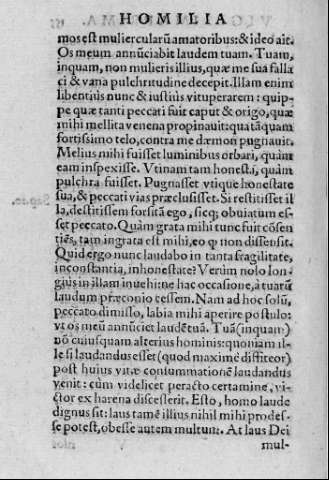 HOMILIA
mos est muliercularũ amatoribus: & ideo ait.
Os meum annũciabit laudem tuam. Tuam,
inquam, non mulieris illius, quæ me sua falla
ci & vana pulchritudine decepit. Illam enim
libentiùs nunc & iustiùs vituperarem: quip-
pe quæ tanti peccati fuit caput & origo, quæ
mihi mellita venena propinauit: qua tãquam
fortissimo telo, contra me dæmon pugnauit.
Melius mihi fuisset luminibus orbari, quàm
eam inspexisse. Vtinam tam honesta, quàm
pulchra fuisset. Pugnasset vtique honestate
sua, & peccati vias præclusisset. Si restitisset il
la, destitissem forsitã ego, sicq; obuiatum es-
set peccato. Quàm grata mihi tunc fuit cõsen
tiẽs, tam ingrata est mihi, eo ꝙ non dissensit.
Quid ergo nunc laudabo in tanta fragilitate,
inconstantia, inhonestate? Verùm nolo lon-
giùs in illam inuehi: ne hac occasione, à tuarũ
laudum præconio cessem. Nam ad hoc solũ,
peccato dimisso, labia mihi aperire postulo:
vt os meũ annũciet laudẽ tuã. Tuã (inquam)
nõ cuiusquam alterius hominis: quoniam il-
le si laudandus esset (quod maximè diffiteor)
post huius vitæ consummationẽ laudandus
venit: cùm videlicet peracto certamine, vi-
ctor ex harena discesserit. Esto, homo laude
dignus sit: laus tamẽ illius nihil mihi prodes-
se potest, obesse autem multum. At laus Dei
mul-